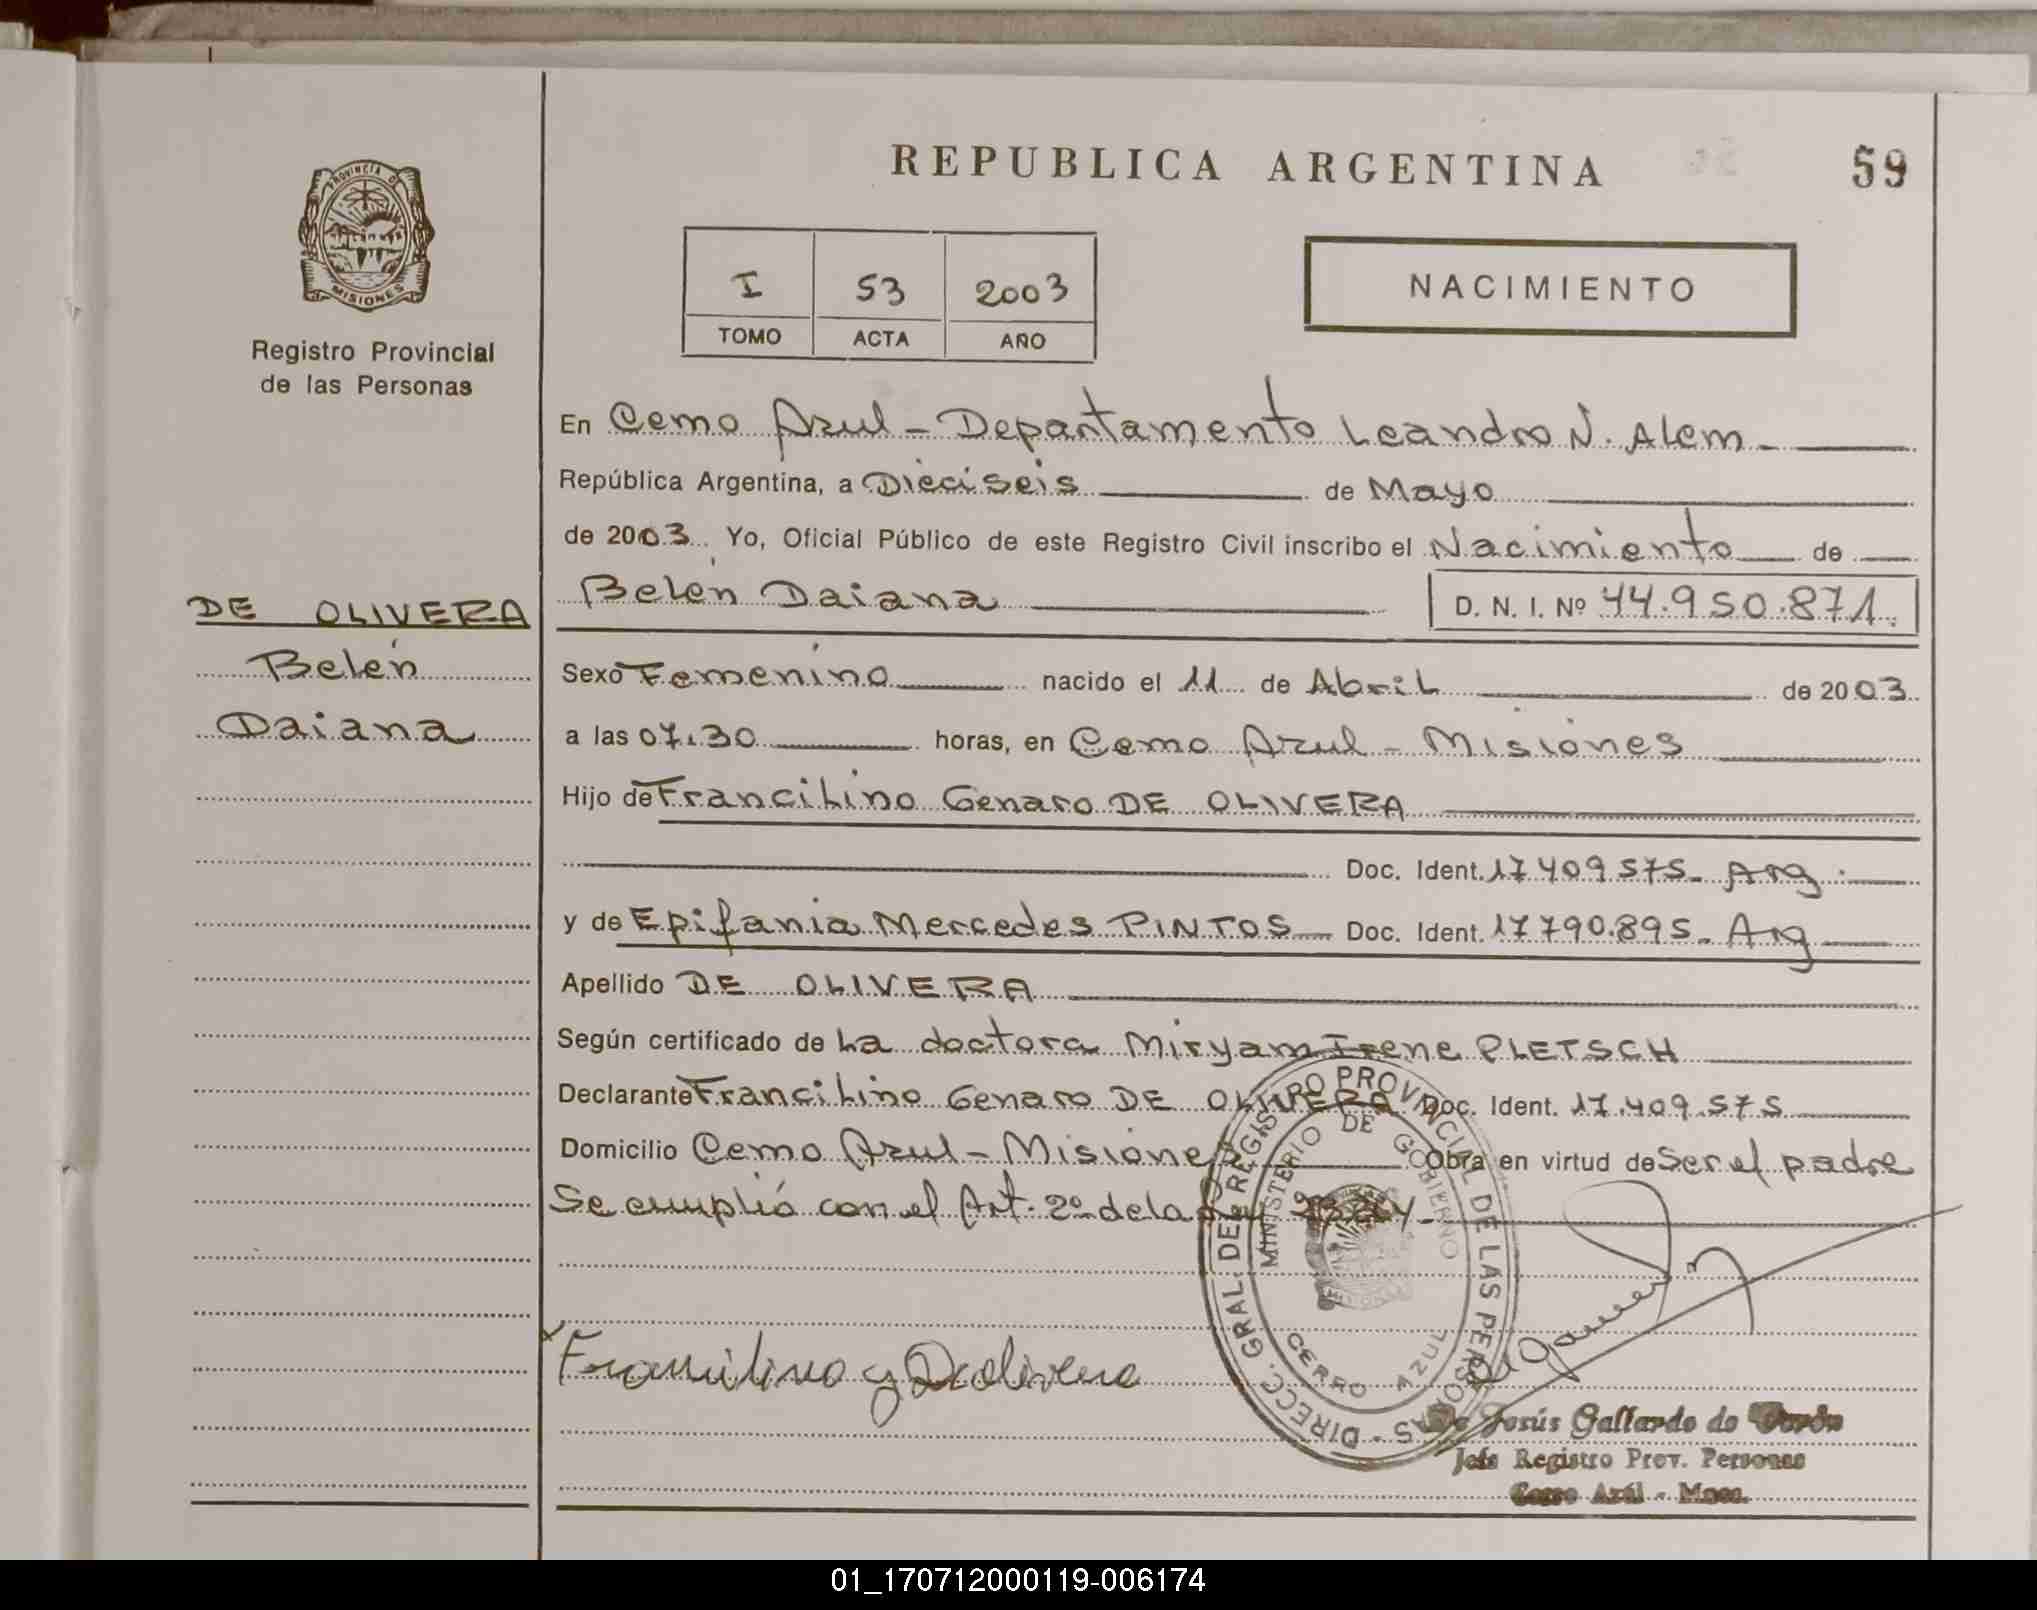 REPUBLICA ARGENTINA
59
PROVINCIA DE
MISIONES
Registro Provincial
de las Personas
I 53 2003
TOMO ACTA AÑO
NACIMIENTO
En Cerro Azul - Departamento Leandro N. Alem
República Argentina, a Dieciseis de Mayo
de 2003. Yo, Oficial Público de este Registro Civil inscribo el Nacimiento de
Belén Daiana D. N. I. Nº 44.950.871.
DE OLIVERA
Belén
Daiana
Sexo Femenino nacido el 11 de Abril de 2003.
a las 07.30 horas, en Cerro Azul - Misiones
Hijo de Francilino Genaro DE OLIVERA
Doc. Ident. 17409575- Arg.
y de Epifania Mercedes PINTOS Doc. Ident. 17790.895- Arg
Apellido DE OLIVERA
Según certificado de La doctora Miryam Irene PLETSCH
Declarante Francilino Genaro DE OLIVERA Doc. Ident. 17.409.575
Domicilio Cerro Azul - Misiones Obra en virtud de Ser el padre
Se cumplió con el Art. 2º de la
DIRECC. GRAL. DEL REGISTRO PROVINCIAL DE LAS PERSONAS -
MINISTERIO DE GOBIERNO
CERRO AZUL
Francilino g Deolivera
Jesús Gallardo de
Jefe Registro Prov. Personas
Cerro Azúl - Mnes.
01_170712000119-006174